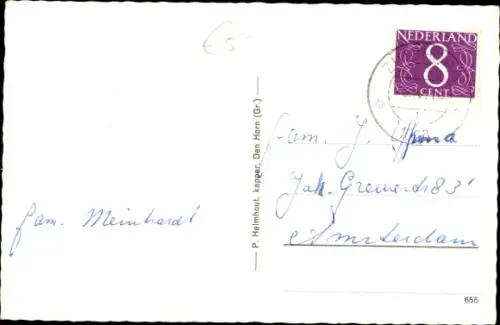 €5-
NEDERLAND
8
CENT
fam. J.
Jak. 83
Amsterdam
fam. Meinhardt
P. Helmhout, kapper, Den Horn (Gr.)
656